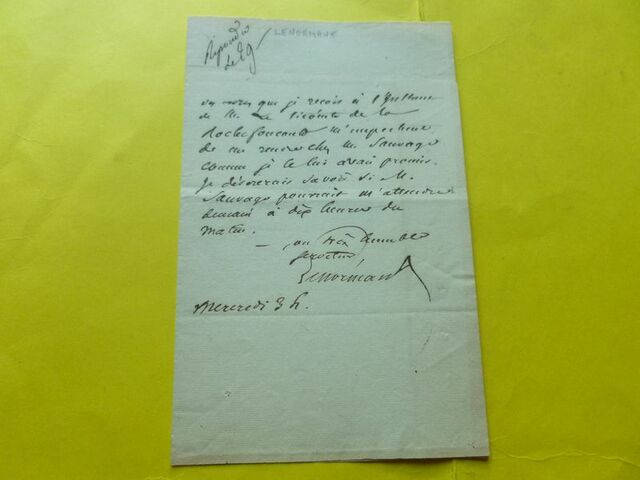 Répondu
le 29
LENORMANT
que je reçois à l'instant
de M. Le Vicomte de la
Rochefoucauld m'empechera
de me rendre chez M. Sauvage
comme je le lui avais promis.
Je désirerais savoir si M.
Sauvage pourrait m'attendre
demain à dix heures du
matin.
— son très humble
serviteur
Lenormant
Mercredi 3 h.